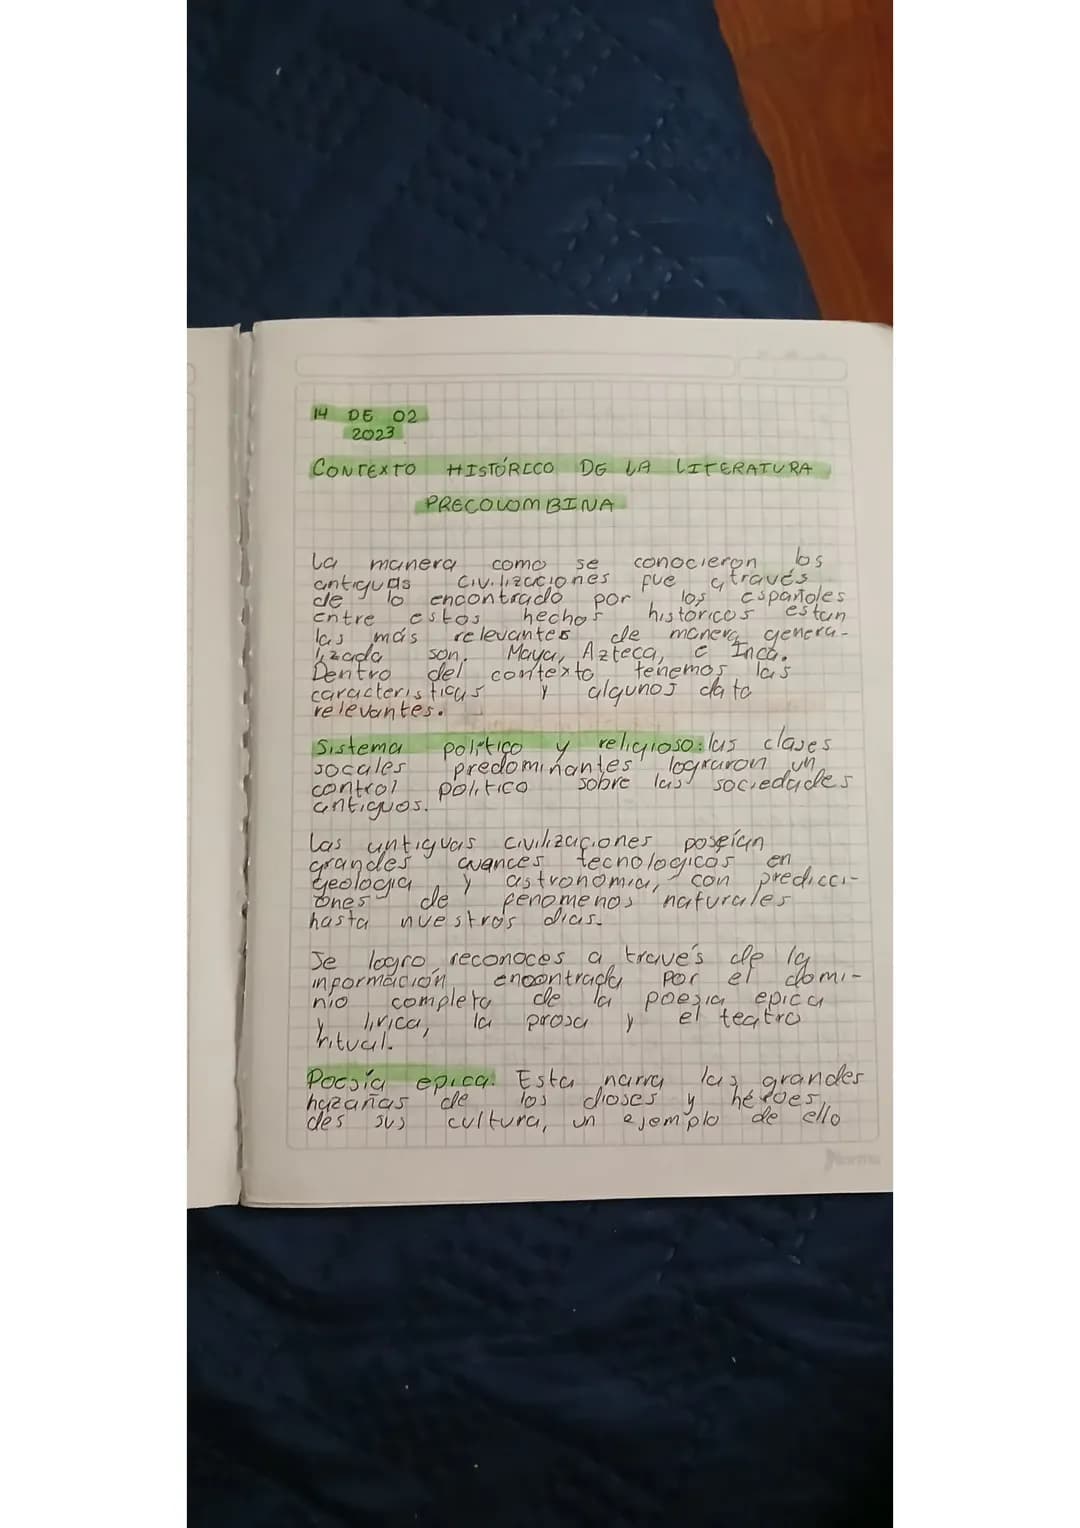 14 DE 02
2023
CONTEXTO HISTÓRICO DE LA LITERATURA
PRECOLOMBINA
La manera como se conocieron los
antiguas civilizaciones fue através
de lo encontrado por los españoles
entre estos hechos históricos estan
las más relevantes de manera genera-
lizada son. Maya, Azteca, e Inca.
Dentro del contexto tenemos las
caracteristicas y algunos dato
relevantes.
Sistema político y religioso: las clases
socales predominantes lograron un
control politico sobre las sociedades
antiguos.
Las antiguas civilizaciones poseían
grandes avances tecnologicos en
geologia y astronomia, con predicci-
ones de fenomenos naturales
hasta nuestros dias.
Se logro reconoces a través de la
información encontrada por el domi-
nio completa de la poezia epica
y lirica, la prosa y el teatro
ritual.
Poesía epica: Esta narra las grandes
hazañas de los dioses y héroes,
des sus cultura, un ejemplo de ello
Norma